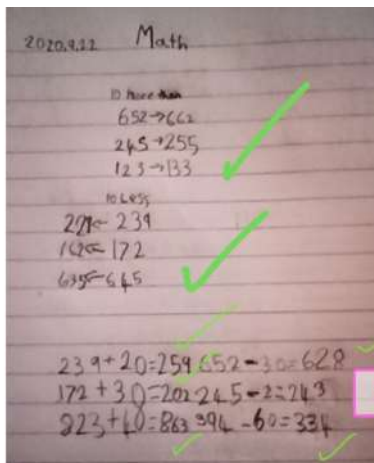 2020.9.22 Math
10 more than
652→662
245→255
123→133
10 Less
239
162← 172
635← 645
239+20=259 652-30=628
172+30=202 245-2=243
823+40=863 394-60=334